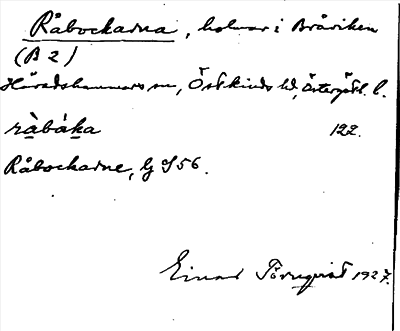 Råbockarna, holmar i Bråviken
(B 2)
Häradshammars sn, Östkinds hd, Östergötl. l.
ràbáka 122.
Råbockarne, G S 56.
Einar Törnqvist 1927.